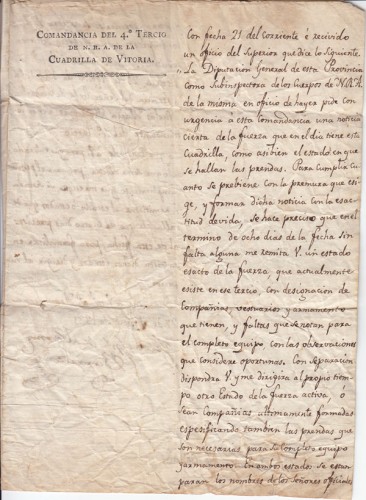 COMANDANCIA DEL 4.º TERCIO
DE N. H. A. DE LA
CUADRILLA DE VITORIA.
Con fecha 21 del corriente é recivido
un oficio del Superior que dice lo siguiente.
La Diputacion General de esta Provincia
como Subinspectora de los Cuerpos de N.H.A.
de la misma en oficio de hayer pide con
urgencia á esta Comandancia una noticia
cierta de la fuerza que en el dia tiene esta
Cuadrilla, como asi bien el estado en que
se hallan las prendas. Para cumplir cu
anto se prebiene con la premura que esi
ge, y formar dicha noticia con la esac
titud devida, se hace preciso que en el
termino de ocho dias de la fecha sin
falta alguna me remita V. un estado
esacto de la fuerza, que actualmente
esiste en ese tercio, con designacion de
Compañias, vestuarios y armamento
que tienen, y faltas que denotan para
el completo equipo con las observaciones
que considere oportunas. Con separacion
dispondra V. y me dirigira al propio tiem
po, otro Estado de la fuerza activa, ó
sean Compañias ultimamente formadas
espesificando tambien las prendas que
son necesarias para su completo equipo
y armamento. En ambos estados se estam
paran los nombres de los Señores oficiales